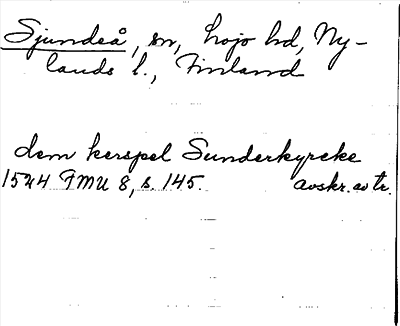 Sjundeå, sn, Lojo hd, Ny-
lands l., Finland
dem kerspel Sunderkyrcke
1524 FMU 8, s. 145. avskr. av tr.